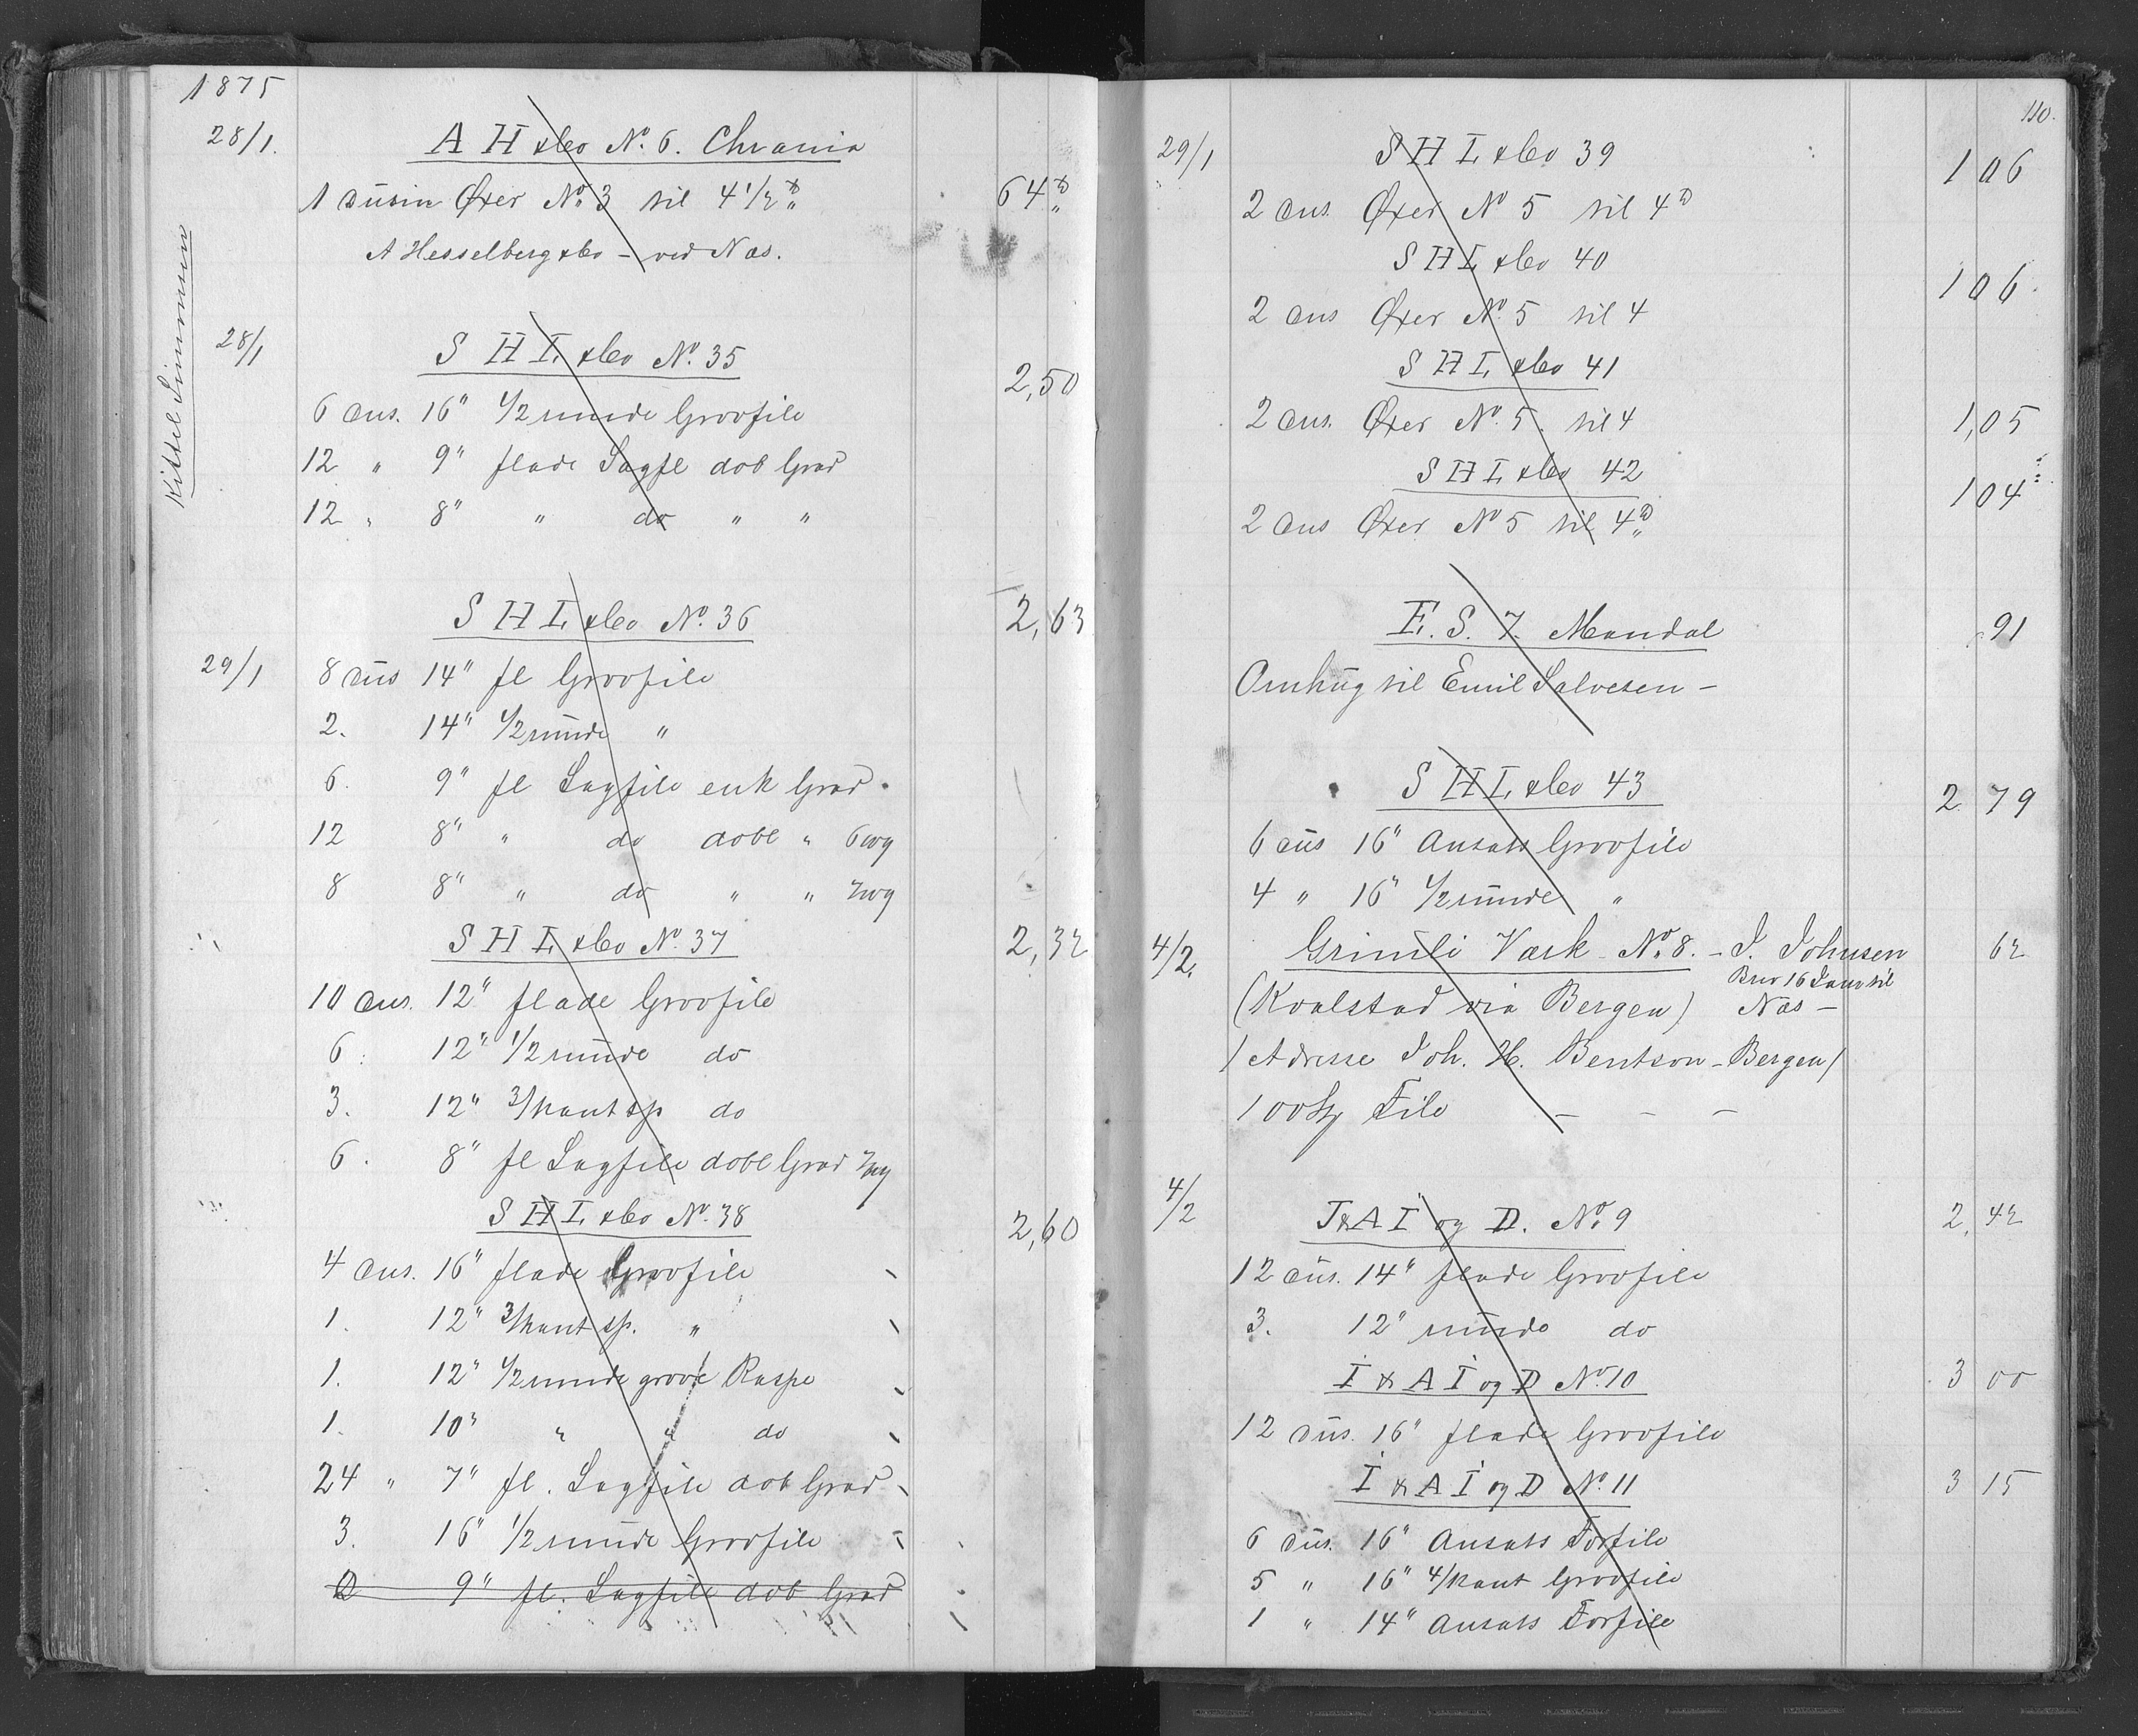 1875
28/1. A H & Co No. 6. Chrania
1 Dusin Øxer No. 3 til 4 1/2 64
A Hesselberg & Co - ved Næs.
Kittel Simonsen
28/1 S H L & Co No. 35 2,50
6 dus. 16" 1/2 runde Groofile
12 " 9" flade Sagfl dob Grad
12 " 8" " do " "
S H L & Co No. 36 2,63
29/1 8 dus 14" fl Groofile
2. 14" 1/2 runde "
6. 9" fl Sagfile enk Grad
12 8" " do dobl "
8 8" " do " "
S H L & Co No. 37 2,32
10 dus. 12" flade Groofile
6 12" 1/2 runde do
3. 12" 3/kant sp do
6. 8" fl Sagfile dobl Grad
S H L & Co No. 38 2,60
4 dus. 16" flade Groofile
1. 12" 3/kant sp. "
1. 12" 1/2 runde grove Raspe
1. 10" " " do
24 " 7" fl. Sagfile dob Grad
3. 16" 1/2 runde Groofile
9" fl. Sagfile dob Grad
110.
29/1 S H L & Co 39 106
2 dus. Øxer No 5 til 4
S H L & Co 40 106
2 dus Øxer No. 5 til 4
S H L & Co 41 1,05
2 dus. Øxer No. 5. til 4
S H L & Co 42 104
2 dus Øxer No 5 til 4
E. S. 7. Mandal 91
Omhug til Emil Salvesen -
S H L & Co 43 2 79
6 dus 16" Ansats Groofile
4 " 16" 1/2 runde "
4/2. Grimeli Værk No. 8. - J. Johnsen 62
Brev 16 Janr til
(Kvalstad via Bergen) Næs -
/ Adresse Joh. H. Bentson - Bergen /
100 File - - -
4/2 J & A I og D. No. 9 2,42
12 dus. 14" flade Groofile
3. 12" runde do
I & A I og D No. 10 3 00
12 dus. 16" flade Groofile
I & A I og D No. 11 3 15
6 dus. 16" Ansats Forfile
5 " 16" 4/kant Groofile
1 " 14" Ansats Forfile